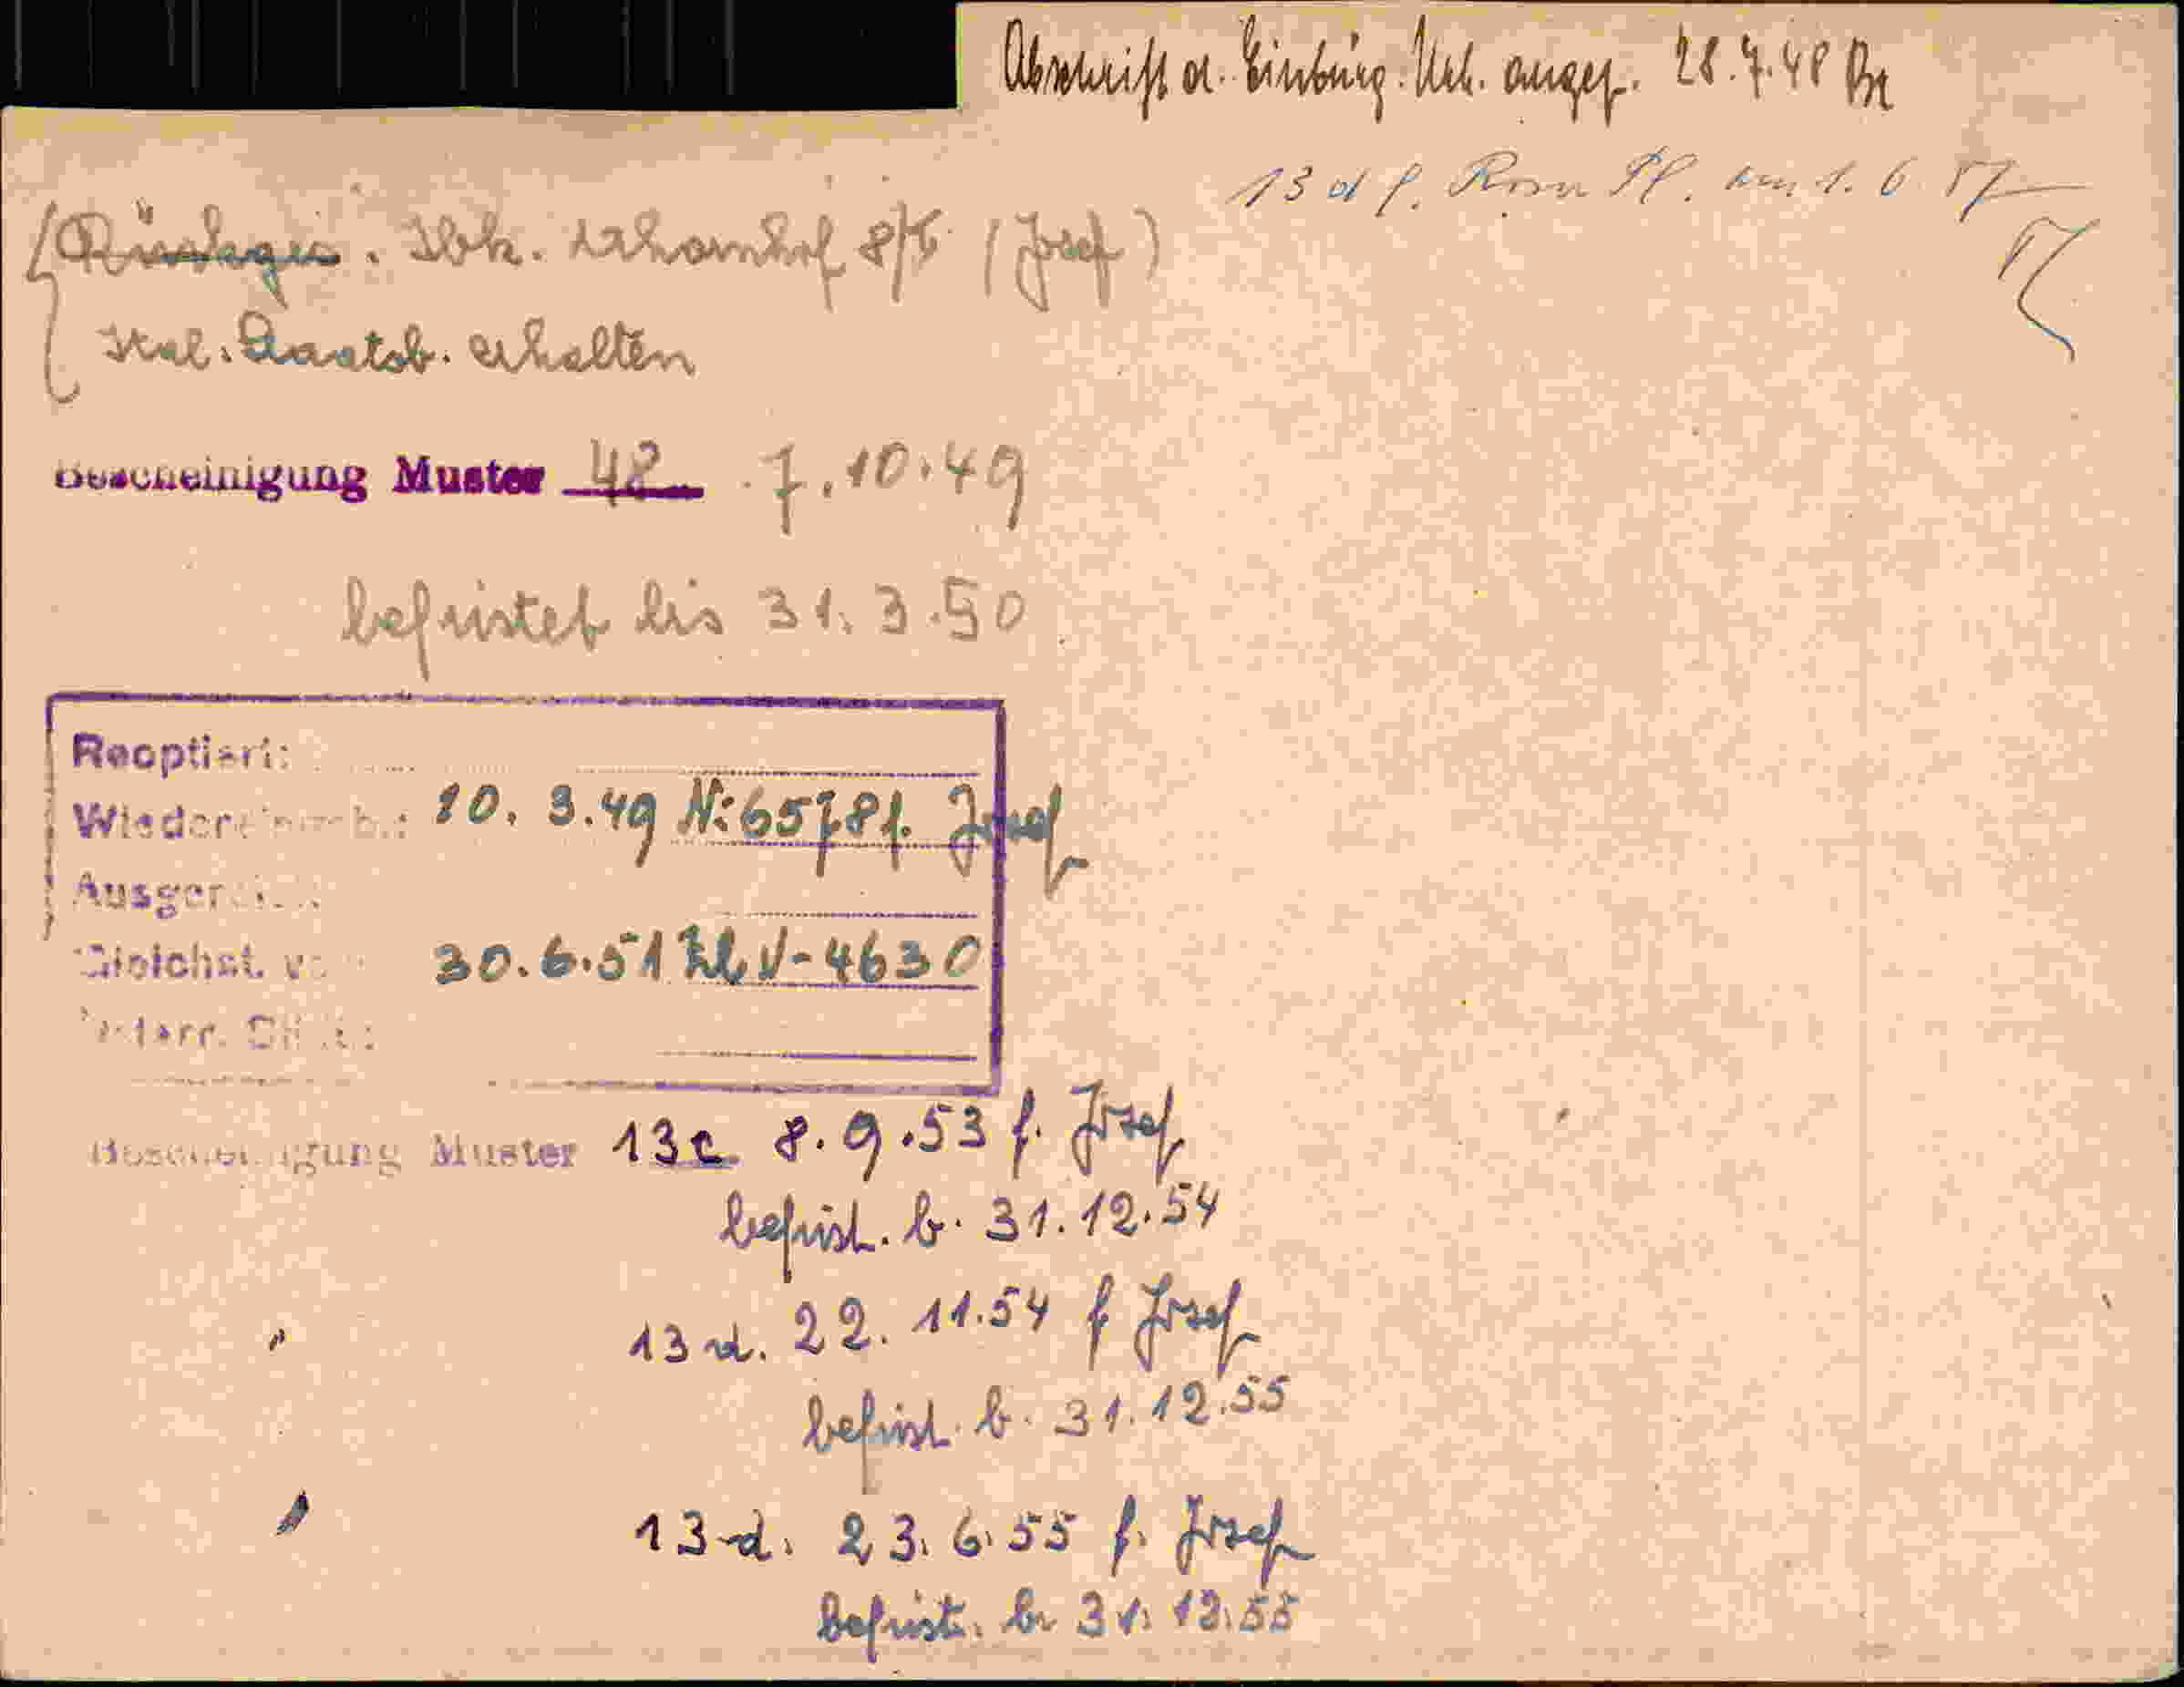 Abschrift d. Einbürg. Urk. angef. 28.7.48
13 d f. Rosa Pf. am 1. 6. 57
8/5 (Josef)
ital. Staatsb. erhalten
Bescheinigung Muster 42 7.10.49
befristet bis 31.3.50
Reoptiert:
10. 3.49 Nr 65781. Josef
Gleichst. 30.6.51 Zl V-4630
Bescheinigung Muster 13c 8.9.53 f. Josef
befrist. b. 31.12.54
" 13 d. 22. 11.54 f Josef
befrist. b. 31.12.55
" 13 d. 23.6.55 f. Josef
befrist. b. 31.12.55